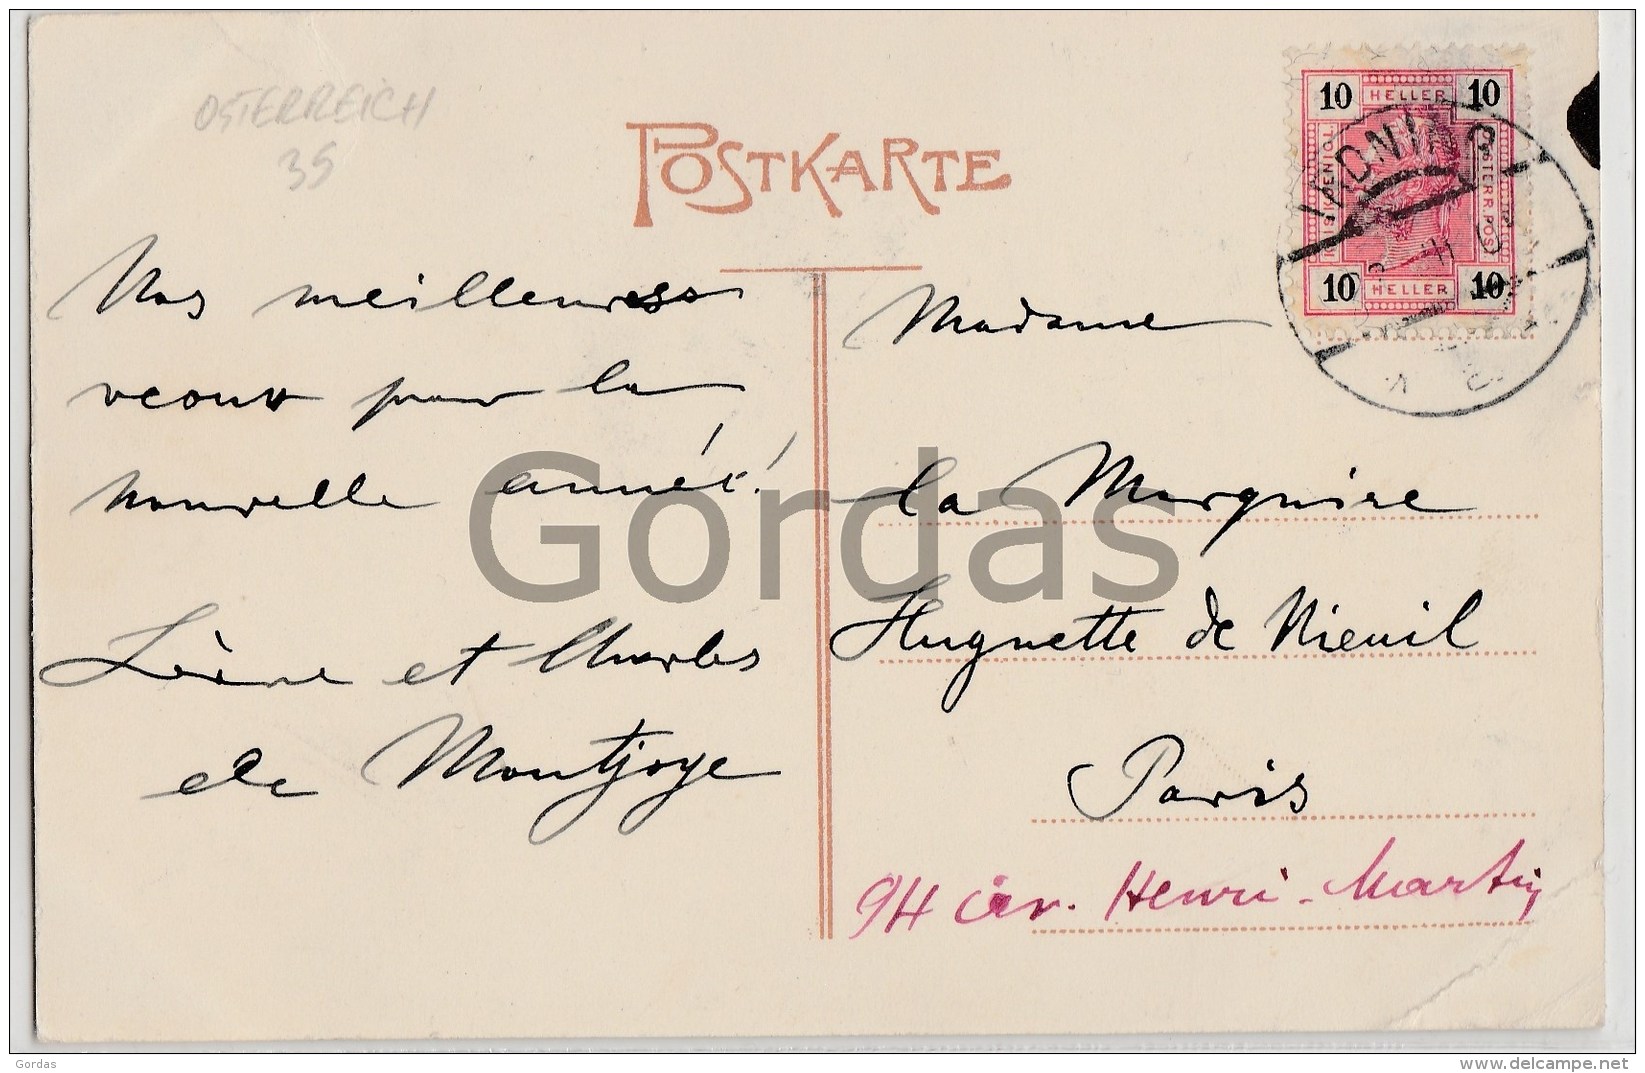 OSTERREICH
35
POSTKARTE
10 HELLER 10
10 HELLER 10
Nos meilleures
veoux pour la
nouvelle année!
et Charles
de Montjoye
Madame
la Marquise
Huguette de Nieuil
Paris
94 av. Henri-Martin
Gordas
Gordas
www.delcampe.net